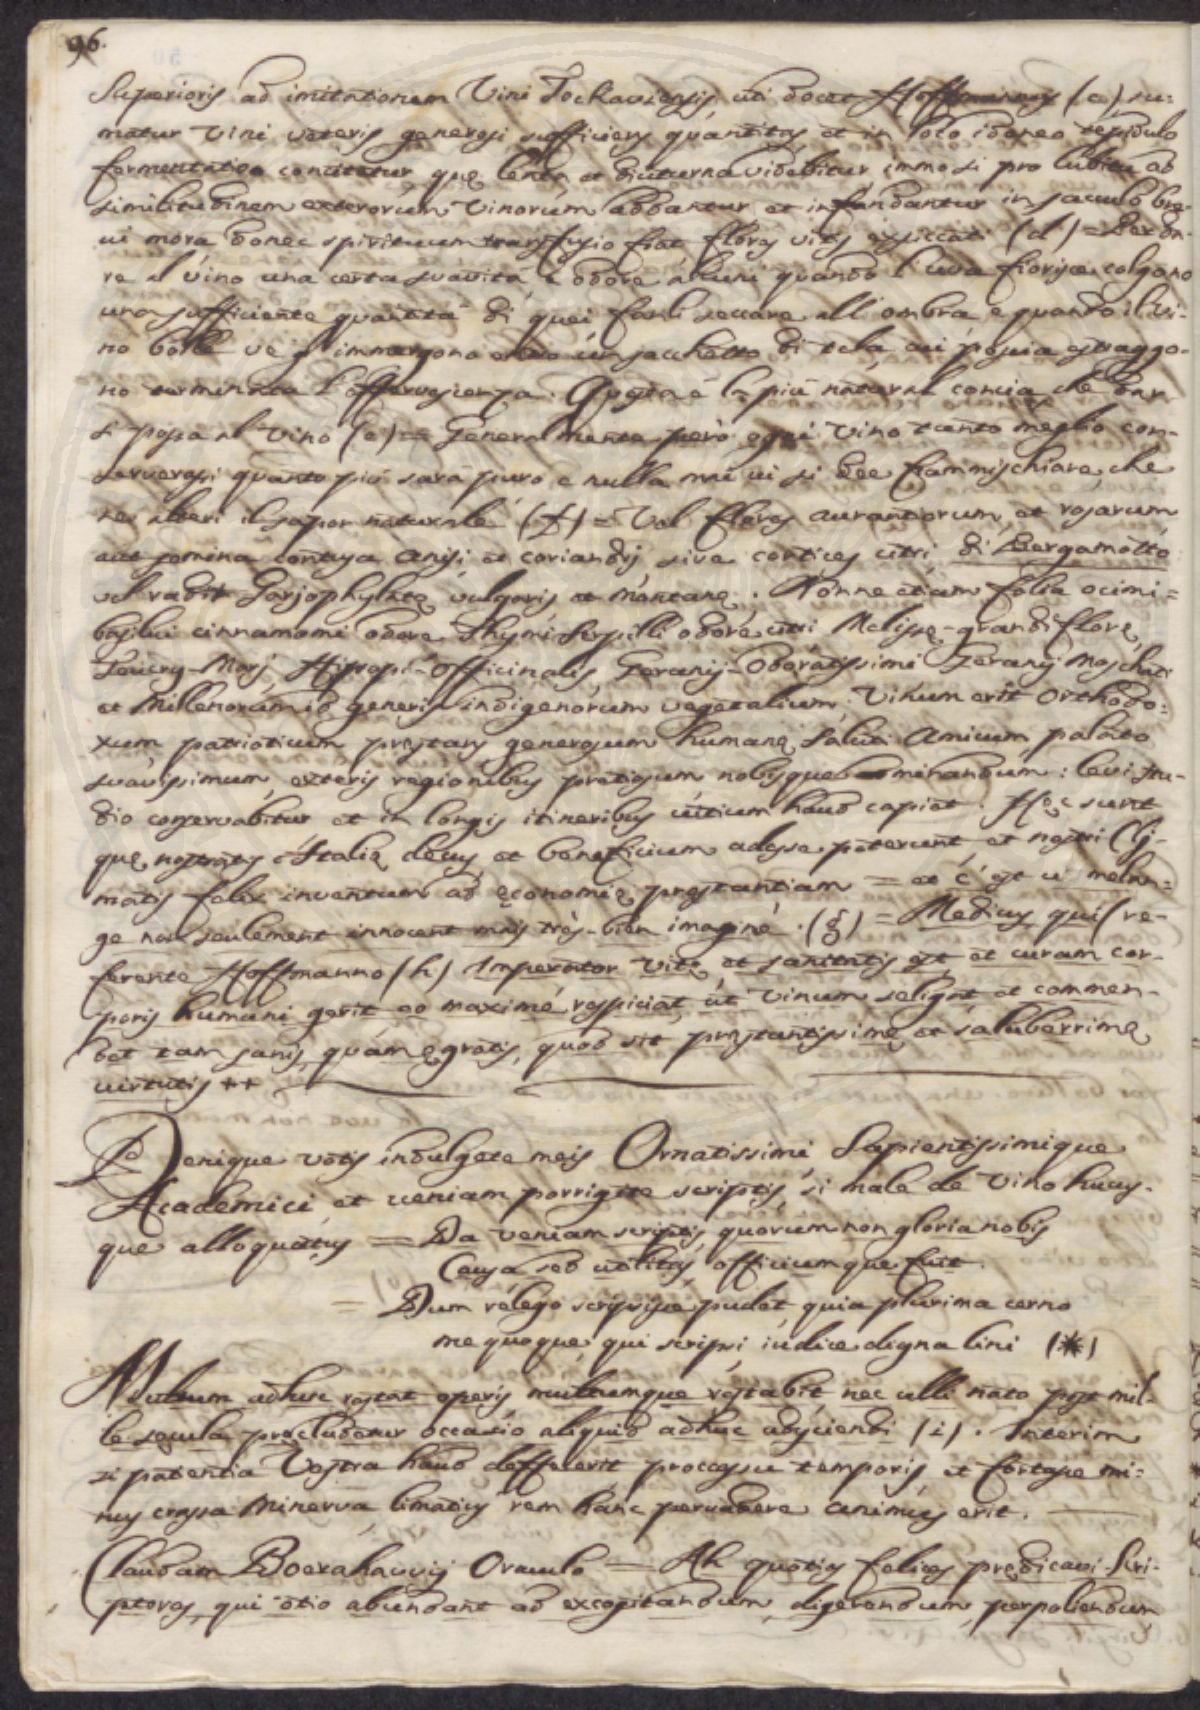 96.
Superioris ad imitationem Vini Tockaviensis, uti docet Hoffmannus (c) su=
matur Vini veteris generosi sufficiens quantitas, et in loco idoneo tepidulo
fermentatio concitetur, quę lenta et diuturna videbitur immo si pro lubitu ad
similitudinem exterorum Vinorum addantur et infundantur in sacculo bre-
vi mora donec spirituum transfusio fiat flores vitis exsiccati (d) = Per da-
re al vino una certa suavità, e odore alcuni quando l'uva fiorisce colgono
una sufficiente quantità di quei fanli seccare all'ombra e quando il vi-
no bolle ve gl'immergono entro un sacchetto di tela cui poscia estraggo-
no terminata l'effervescenza. Questa è la più natural concia che dar
si possa al Vino (e) = Generalmente però ogni Vino tanto meglio con-
serverassi quanto più sarà puro e nulla mai vi si dee frammischiare, che
ne alteri il sapor naturale (f) = Vel flores aurantiorum, et rosarum
aut semina contusa Anisi et coriandri, sive cortices citri, di Bergamotto
vel radix Garjophylatę vulgaris et montanę. Nonne etiam folia ocimi=
basilici cinnamomi odore Thymi Serpilli odore citri Melissę-grandiflorę,
Teucry-Mari Hissopi-Officinalis, Gerany-Odoratissimi Gerany Moschati
et Millenorum id generis indigenorum vegetalium. Vinum erit Orthodo=
xum patrioticum prestans generosum humanę Saluti Amicum, palato
suavissimum, exteris regionibus pretiosum nobisque mirandum: levi stu-
dio conservabitur et in longis itineribus vitium haud capiet. Hęc sunt
quę nostratis Italię decus, et beneficium adesse poterunt et nostri Cli-
matis felix inventum ad ęconomię prestantiam = et c'est u melan=
ge non seulement innocent mais très-bien imaginé. (g) = Medicus, qui (re-
ferente Hoffmanno (h) Imperator vitę et sanitatis est, et curam cor-
poris humani gerit eo maximè respiciat, ut Vinum seligat et commen-
det tam sanis, quàm ęgrotis, quod sit prestantissimę et saluberrimę
virtutis ++
Denique votis indulgete meis Ornatissimi Sapientissimique
Academici, et veniam porrigite scriptis, si male de Vino hucus-
que alloquutus = Da veniam scriptis, quorum non gloria nobis
Causa sed utilitas, officiumque fuit.
= Dum relego scripsisse pudet quia plurima cerno
me quoque qui scripsi iudice digna lini (*)
Multum adhuc restat operis, multumque restabit, nec ulli nato post mil-
le secula precludetur occasio aliquid adhuc adyciendi (i). Interim
si patientia Vestra haud deffecerit processu temporis, et fortasse mi-
nus crassa Minerva limatius rem hanc pervadere animus erit.
Claudam Boerahavvij Oraculo = Ah quoties felices prędicavi Scri-
ptores, qui otio abundant ad excogitandum, digerendum, perpoliendum